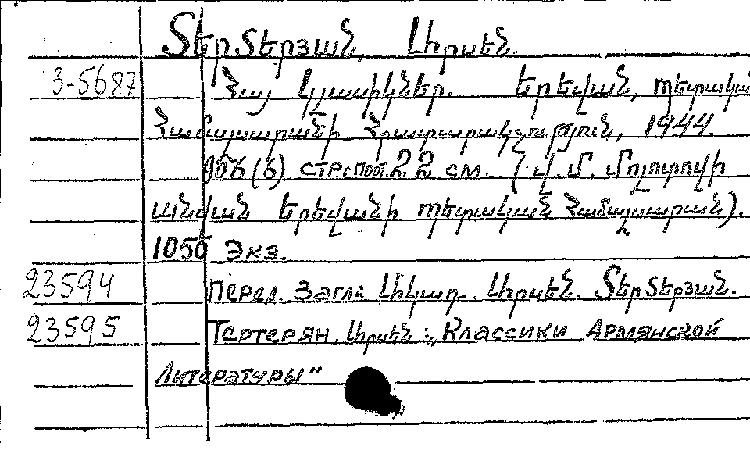 Տերտերյան, Արսեն.
3-5687 Հայ կլասիկներ. Երեվան, պետական
Համալսարանի Հրատարակչություն, 1944.
(6) стр. порт. 22 см. (Վ. Մ. Մոլոտովի
անվան Երեվանի պետական Համալսարան).
1050 экз.
23594 перед загл: Արսեն Տերտերյան.
23595 Тертерян, Արսեն: „Классики Армянской
Литературы"